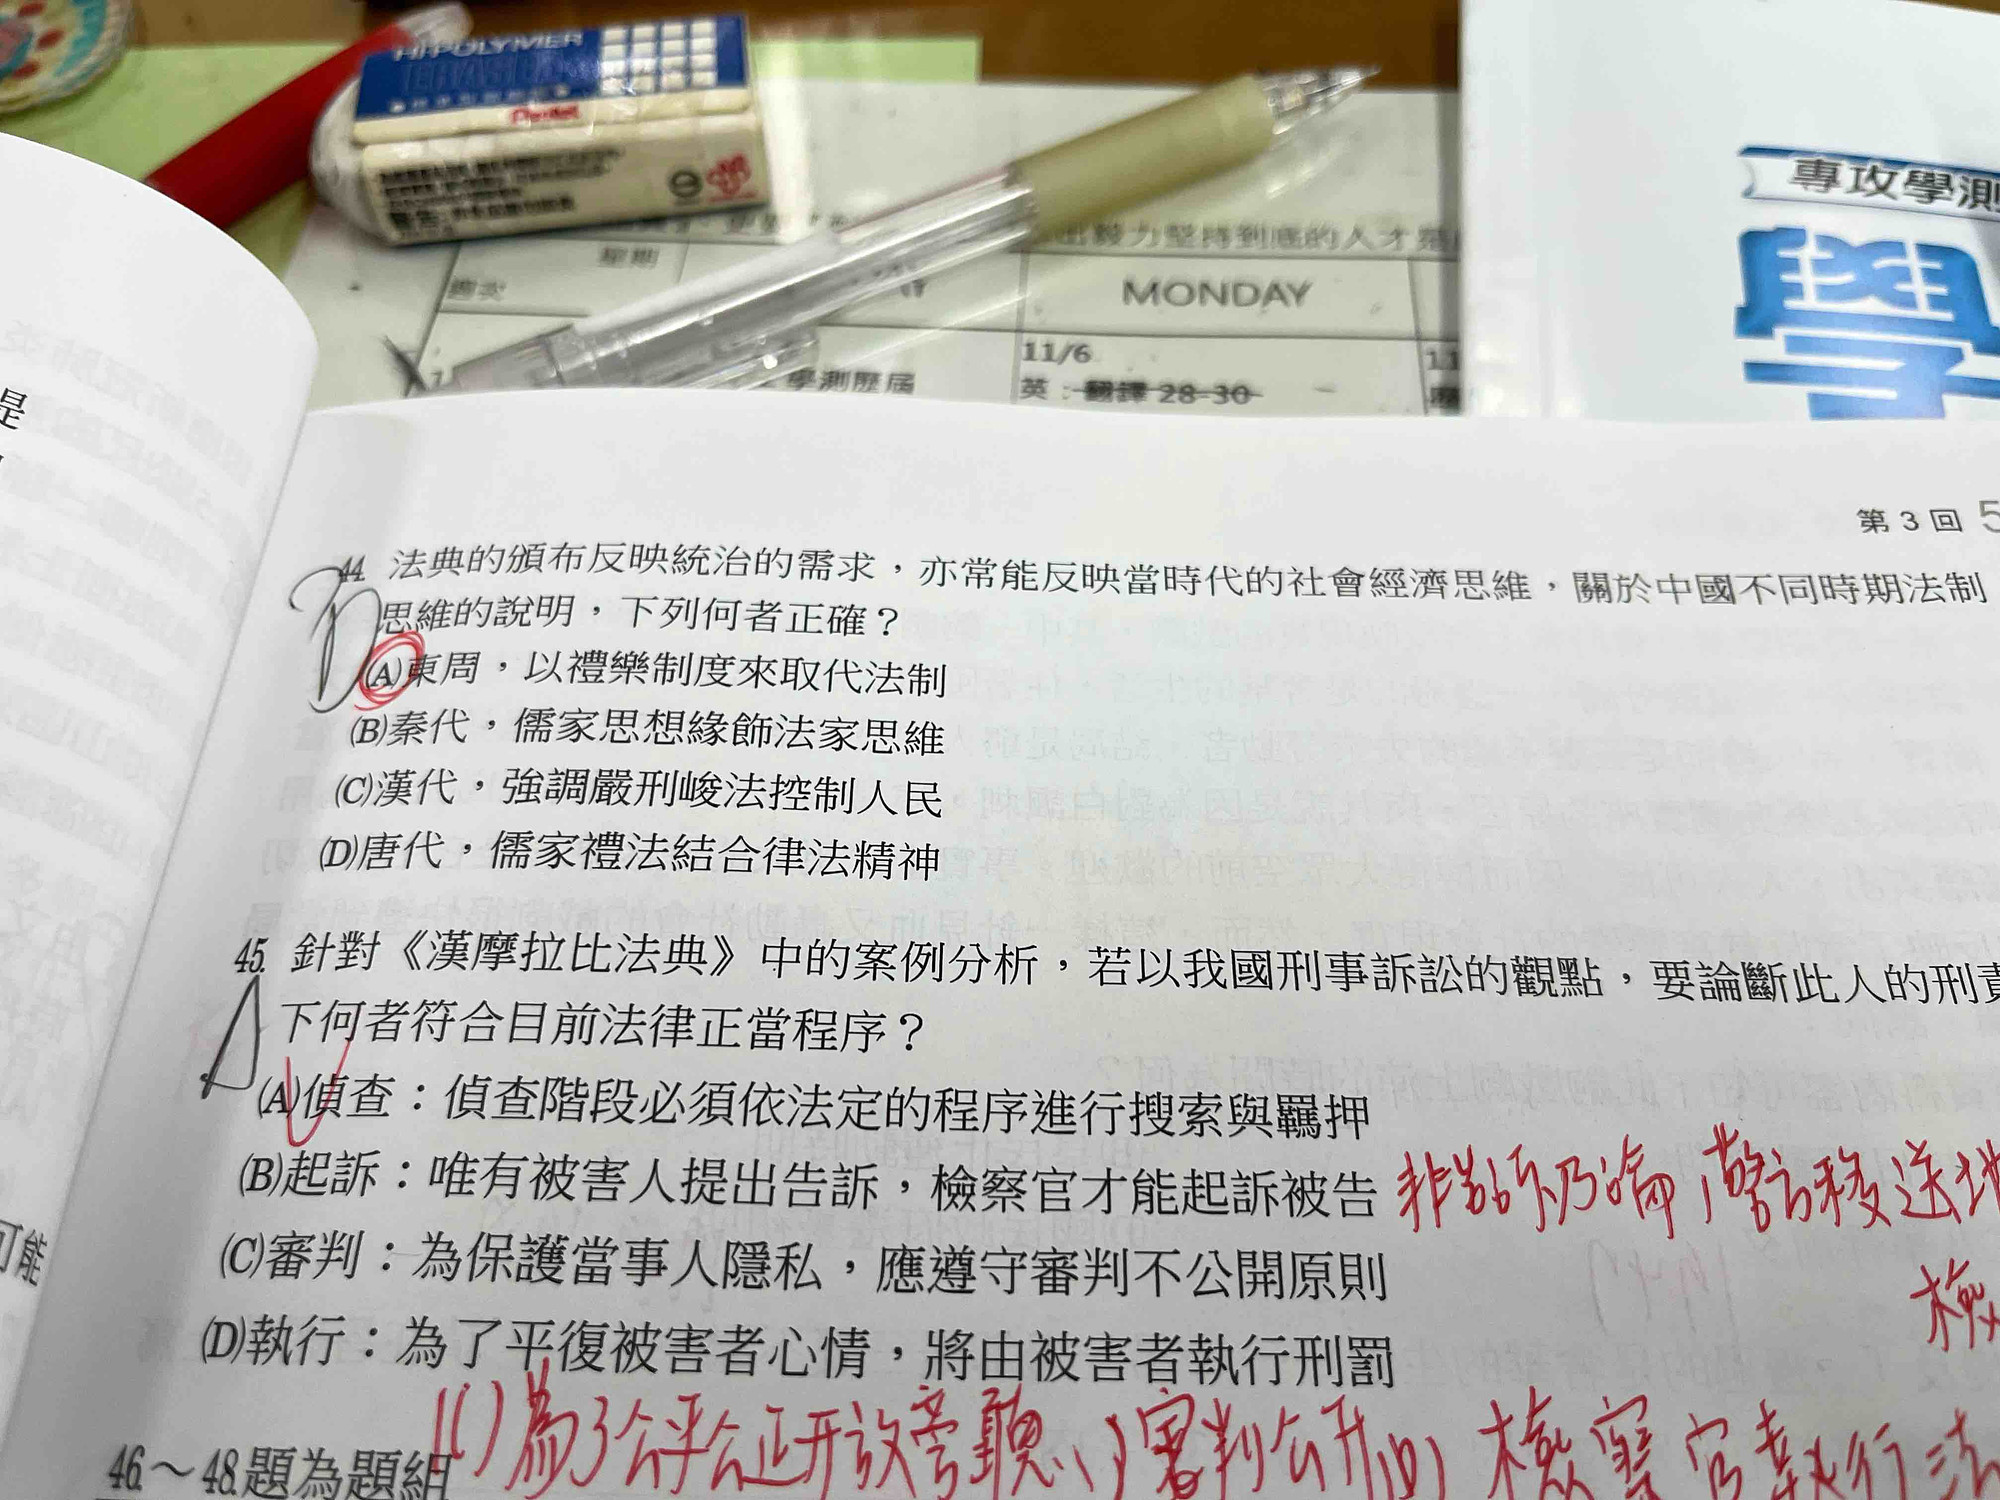 HI-POLYMER
ERASER
Pentel
專攻學測
學
星期
週次
出毅力堅持到底的人才是
MONDAY
11/6
英：翻譯 28-30
學測歷屆
是
可能
第 3 回 5
44. 法典的頒布反映統治的需求，亦常能反映當時代的社會經濟思維，關於中國不同時期法制
思維的說明，下列何者正確？
D
(A)東周，以禮樂制度來取代法制
(B)秦代，儒家思想緣飾法家思維
(C)漢代，強調嚴刑峻法控制人民
(D)唐代，儒家禮法結合律法精神
45. 針對《漢摩拉比法典》中的案例分析，若以我國刑事訴訟的觀點，要論斷此人的刑責
下何者符合目前法律正當程序？
A
(A)偵查：偵查階段必須依法定的程序進行搜索與羈押
(B)起訴：唯有被害人提出告訴，檢察官才能起訴被告
非告訴乃論，警方移送地
檢
(C)審判：為保護當事人隱私，應遵守審判不公開原則
(D)執行：為了平復被害者心情，將由被害者執行刑罰
(C)為了公平公正開放旁聽、審判公開(D)檢察官執行
46.～48.題為題組